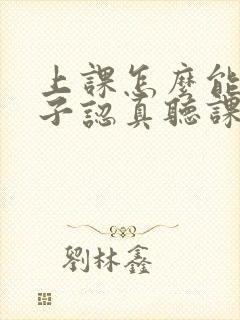 上課怎麼能
子認真聽課
劉林鑫